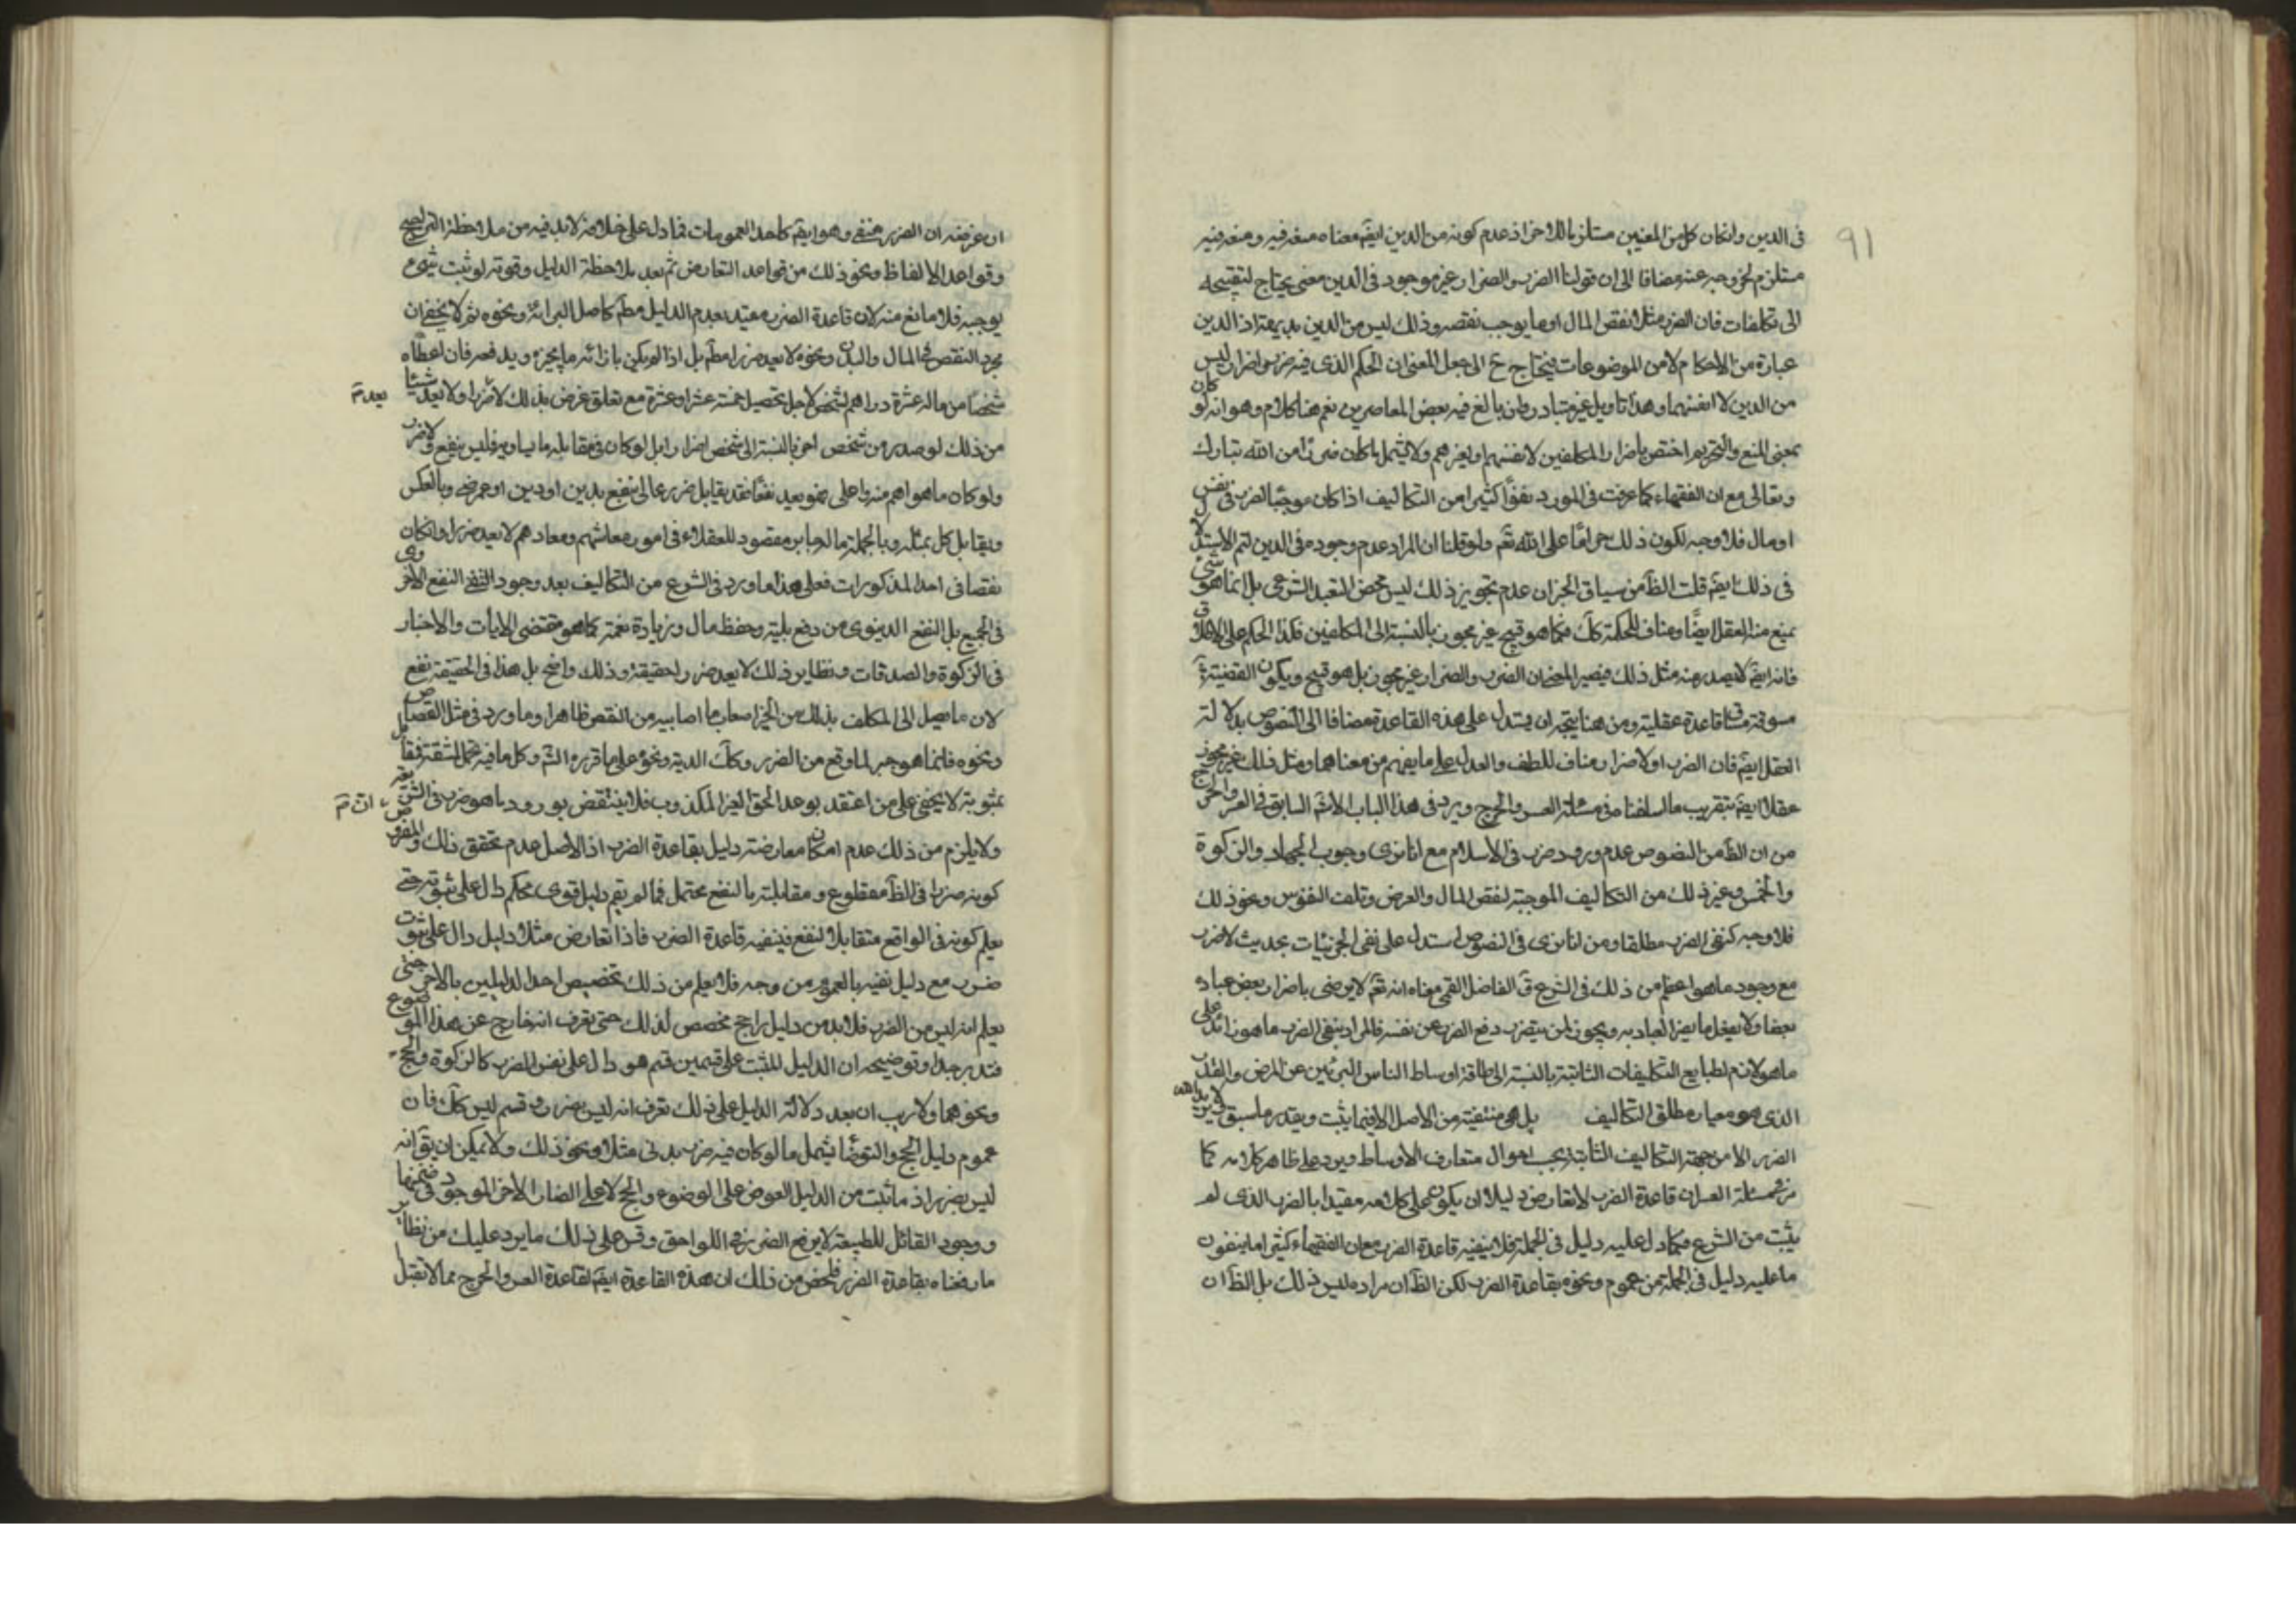 ٩١
فى الدين وانكان كل من المعنيين مستلزما للاخر اذ عدم كونه من الدين ايضا معناه
مستلزم لخروجه عنه مضافا الى ان قولنا الضرر والضرار غير موجود فى الدين معنى يحتاج لتنقيحه
الى تكلفات فان الضرر مثلا نقص المال او ما يوجب نقصه وذلك ليس من الدين بديهة اذ الدين
عبارة من الاحكام لا من الموضوعات فيحتاج ح الى جعل المعنى ان الحكم الذى فيه ضرر او اضرار ليس
من الدين لا انفسهما وهذا تاويل غير متبادر وان بالغ فيه بعض المعاصرين نعم هنا كلام وهو انه لو كان
بمعنى المنع والتحريم اختص باضرار المكلفين لانفسهم او لغيرهم ولا يشمل ما كان ضررا من الله تبارك
وتعالى مع ان الفقهاء كما عرفت فى المورد نفوا كثيرا من التكاليف اذا كان موجبا لضرر فى نفس
او مال فلا وجه لكون ذلك حراما على الله تعم ولو قلنا ان المراد عدم وجوده فى الدين لتم الاستدلال
فى ذلك ايضا قلت الظ من سياق الخبر ان عدم تجويز ذلك ليس محض التعبد الشرعى بل انما هو شىء
يمنع منه العقل ايضا ومناف للحكمة كك فكما هو قبيح غير مجوز بالنسبة الى المكلفين فكذا الحكم على الاطلاق
فانه ايضا لا يصدر منه مثل ذلك فيصير المعنى ان الضرر والضرار غير مجوز بل هو قبيح ويكون القضية
مسوقة مساق قاعدة عقلية ومن هنا يتجه ان يستدل على هذه القاعدة مضافا الى النصوص بدلالة
العقل ايضا فان الضرر او الاضرار مناف للطف والعدل على ما يفهم من معناهما ومثل ذلك غير مجوز
عقلا ايضا بتقريب ما اسلفنا فى مسئلة العسر والحرج ويرد فى هذا الباب السابق فى العسر والحرج
من ان الظ من النصوص عدم ورود ضرر فى الاسلام مع انا نرى وجوب الجهاد والزكوة
والخمس وغير ذلك من التكاليف الموجبة لنقص المال والعرض وتلف النفوس ونحو ذلك
فلا وجه لنفى الضرر مطلقا ومن انا نرى فى النصوص استدل على نفى الجزئيات بحديث لا ضرر
مع وجود ما هو اعظم من ذلك فى الشرع ق الفاضل القمى معناه انه تعم لا يرضى باضرار بعض عباده
بعضا ولا يفعل ما يضر العباد به ويجوز لمن يتضرر دفع الضرر عن نفسه فالمراد بنفى الضرر ما هو زائد على
ما هو لازم لطبايع التكليفات الثابتة بالنسبة الى طاقة اوساط الناس البريئين عن المرض والعذر
الذى هو معيار مطلق التكاليف بل هى منتفية من الاصل الا فيما يثبت وبقدر ما سبق
الضرر الا من جهة التكاليف الثابتة بحسب احوال متعارف الاوساط ويرد على ظاهر كلامه كما
مر فى مسئلة العسر ان قاعدة الضرر لا تعارض دليلا ان يكون على كلامه مقيدا بالضرر الذى لم
يثبت من الشرع فكما دل عليه دليل فى الجملة فلا ينفيه قاعدة الضرر مع ان الفقهاء كثيرا ما ينفون
ما عليه دليل فى الجملة من عموم ونحوه بقاعدة الضرر لكن الظ ان مراده ليس ذلك بل الظ ان
ان غرضه ان الضرر منفى وهو ايضا كاحد العمومات فما دل على خلافه لا بد فيه من ملاحظة الترجيح
وقواعد الالفاظ ونحو ذلك من قواعد التعارض ثم بعد ملاحظة الدليل وقوته لو ثبت شىء
يوجبه فلا مانع منه لان قاعدة الضرر مقيد بعدم الدليل مطلقا كاصل البرائة ونحوه ثم لا يخفى ان
مجرد النقص فى المال والبدن ونحوه لا يعد ضررا مطلقا بل اذا لم يكن بازائه ما يجبره ويدفعه فان اعطاه
شخصا من ماله عشرة دراهم لشخص لاجل تحصيل خمسة عشر او عشرة مع تعلق غرض بذلك لا ضررا ولا يعد شيئا يعد م
من ذلك لو صدر من شخص اخر بالنسبة الى شخص اضرارا بل لو كان فى مقابله ما يساويه فليس بنفع ولا ضرر
ولو كان ما هو اهم منه واعلى فهو يعد نفعا فقد يقابل ضرر مالى بنفع بدنى او دينى او عرضى وبالعكس
ويقابل كل بمثله وبالجملة ما له جابر مقصود للعقلاء فى امور معاشهم ومعادهم لا يعد ضررا وانكان
نقصا فى احد المذكورات فعلى هذا ما ورد فى الشرع من التكاليف بعد وجود النفع الاخروى
فى الجميع بل النفع الدنيوى من دفع بلية وحفظ مال وزيادة نعمة كما هو مقتضى الايات والاخبار
فى الزكوة والصدقات ونظاير ذلك لا يعد ضررا حقيقة وذلك واضح بل هذا فى الحقيقة نفع
لان ما يصل الى المكلف بذلك من الخير اضعاف ما اصابه من النقص ظاهرا وما ورد فى مثل القصاص
ونحوه فانما هو جبر لما وقع من الضرر وكك الدية ونحوه على ما قرره الشرع وكل ما فيه تحمل المشقة
بمثوبة لا يخفى على من اعتقد بوعد الحق الغير المكذوب فلا ينتقض بورود ما هو ضرر فى الشريعة ان م
ولا يلزم من ذلك عدم امكان معارضة دليل بقاعدة الضرر اذ الاصل عدم تحقق ذلك والمفروض
كونه ضررا فى الظ مقطوع ومقابلته بالنفع محتمل فما لم يقم دليل قوى محكم دال على ثبوته حتى
يعلم كونه فى الواقع متقابلا لنفع فينفيه قاعدة الضرر فاذا تعارض مثلا دليل دال على ثبوت
ضرر مع دليل نفيه بالعموم من وجه فلا يعلم من ذلك تخصيص احد الدليلين بالاخر حتى
يعلم انه ليس من الضرر فلا بد من دليل راجح مخصص لذلك حتى يعرف انه خارج عن هذا الموضوع
فتدبر جدا وتوضيحه ان الدليل المثبت على قسمين قسم هو دال على نفس الضرر كالزكوة والحج
ونحوهما ولا ريب ان بعد دلالة الدليل على ذلك نعرف انه ليس بضرر وقسم ليس كك فان
عموم دليل الحج والتوضأ يشمل ما لو كان فيه ضرر بدنى مثلا ونحو ذلك ولا يمكن ان يق انه
ليس بضرر اذ ما ثبت من الدليل العوض على الوضوء والحج لا على الضار الاخر الموجود فى ضمنها
ووجود القائل للطبيعة لا يرفع الضرر فى اللواحق وقس على ذلك ما يرد عليك من نظائر
ما رفعناه بقاعدة الضرر فلخص من ذلك ان هذه القاعدة ايضا كقاعدة العسر والحرج مما لا تقبل